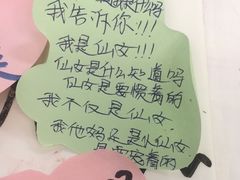 我告诉你!!!
我是仙女!!!
仙女是什么知道吗
仙女是要惯着的
我不仅是仙女
我他妈还是小仙女
是要宠着的